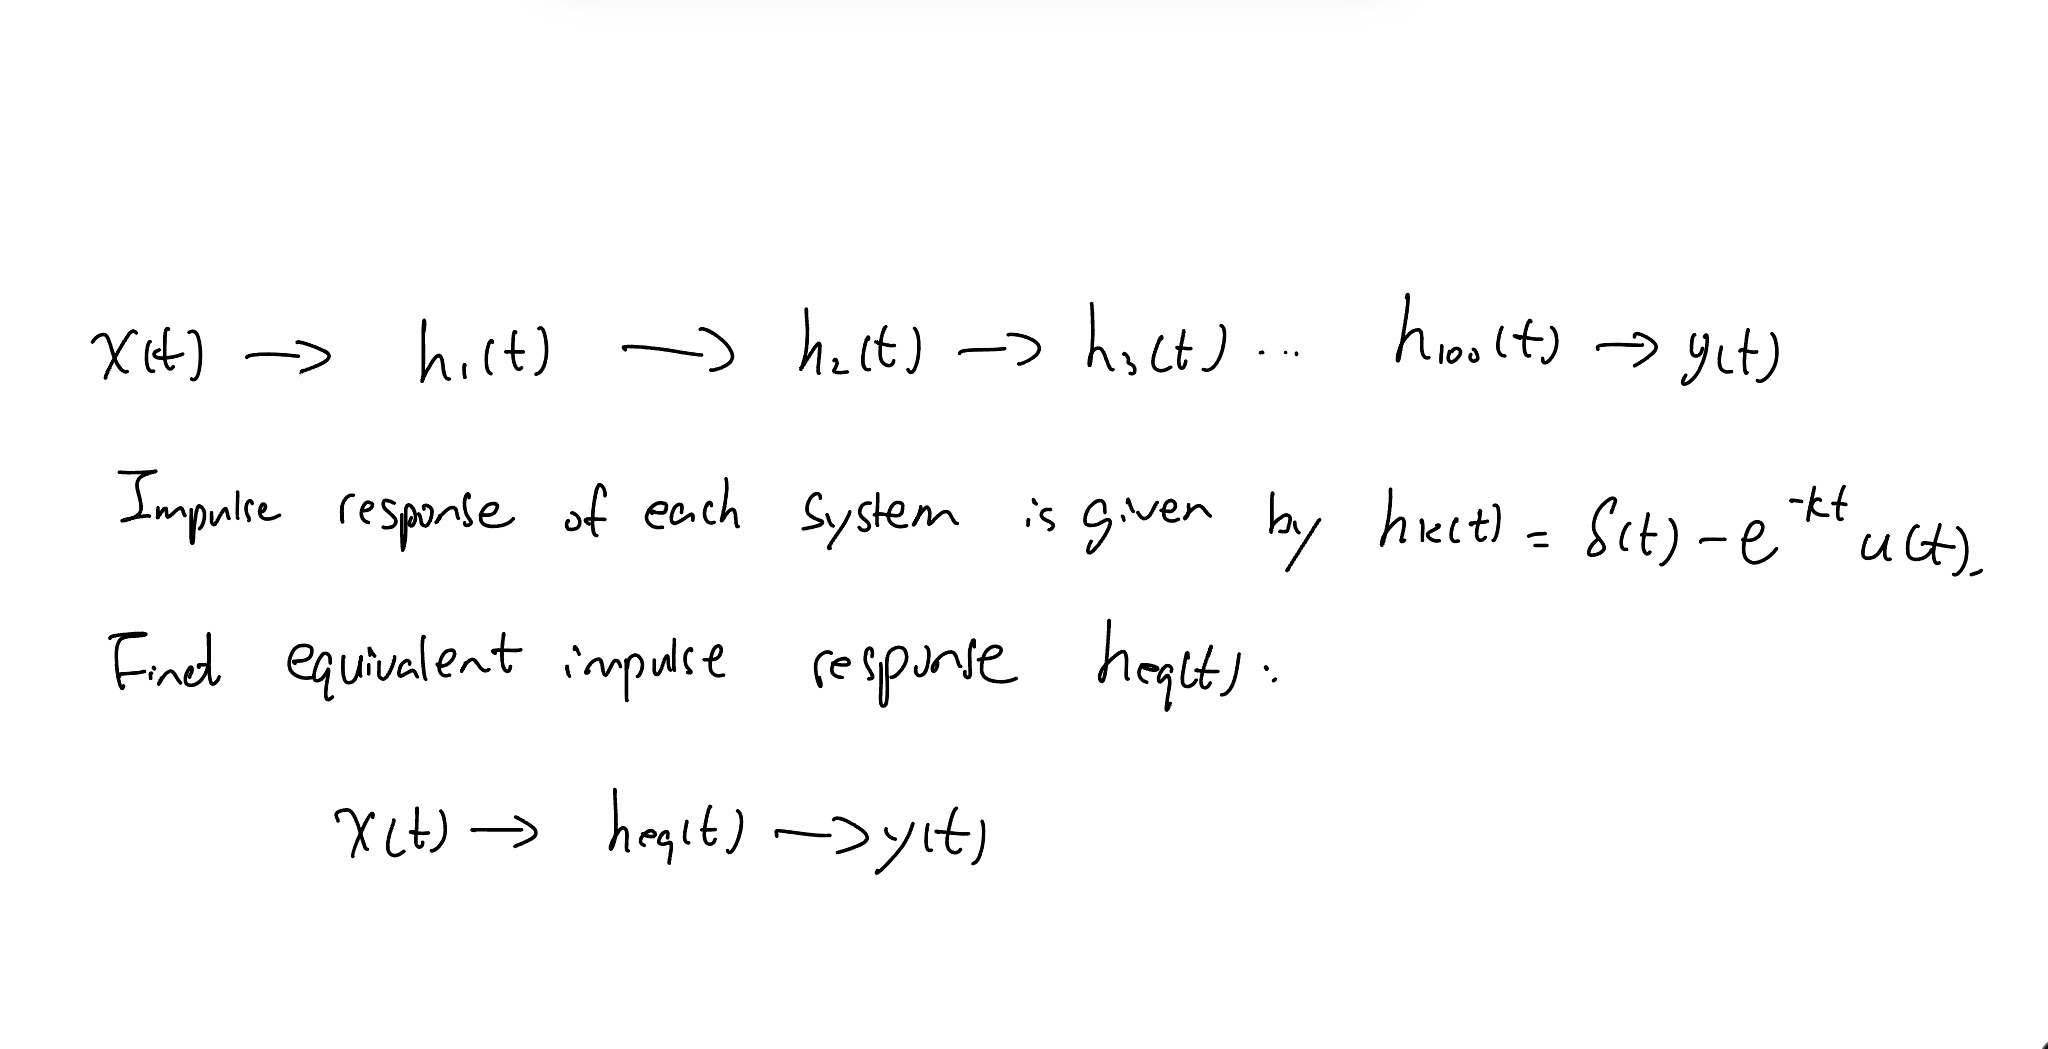 x(t) → h₁(t) → h₂(t) → h₃(t) ... h₁₀₀(t) → y(t)
Impulse response of each system is given by hₖ(t) = δ(t) - e^{-kt} u(t).
Find equivalent impulse response h_eq(t):
x(t) → h_eq(t) → y(t)